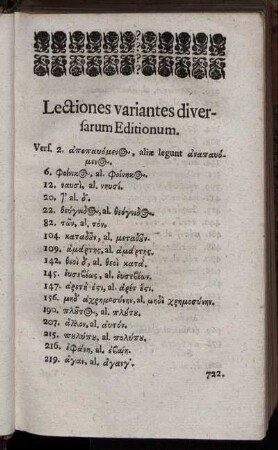 Lectiones variantes diver-
sarum Editionum.
Vers. 2. ἀποπαυόμενος, aliæ legunt ἀναπαυό-
μενος.
6. φοίνικος, al. φοίνηκος.
12. ναυσὶ, al. νηυσί.
20. al. δ'.
22. θεύγνιδος, al. θεόγνιδος.
82. τῶν, al. τόν.
104. καταδοῦν, al. μεταδοῦν.
109. ἁμάρτης, al. ἁμάρτης.
142. θεοὶ δ', al. θεοὶ κατά.
145. εὐσεβέως, al. εὐσεβέων.
147. ἀρετή ἐστι, al. ἀρέτ' ἐστι.
156. μηδ' ἀχρημοσύνην, al. μηδὲ χρημοσύνην.
190. πλοῦτος, al. πλούτου.
207. ἄλλον, al. αὐτόν.
215. πουλύπου, al. πολύπου.
216. ἐφάνη, al.
219. ἄγαν, al.
722.